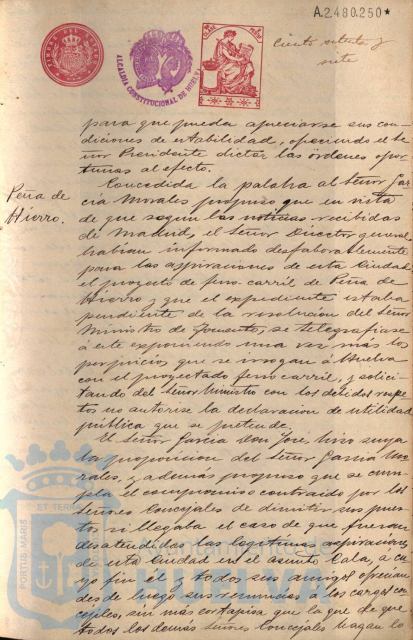 A.2.480.250*
Ciento setenta y
siete
ALCALDIA CONSTITUCIONAL DE HUELVA
para que pueda apreciarse sus con-
diciones de estabilidad, ofreciendo el Se-
ñor Presidente dictar las órdenes opor-
tunas al efecto.
Peña de
Hierro.
Concedida la palabra al Señor Gar-
cia Morales propuso que en vista
de que segun las noticias recibidas
de Madrid, el Señor Director general
habian informado desfaborablemente
para las aspiraciones de esta Ciudad
el proyecto de ferro-carril de Peña de
Hierro, y que el expediente estaba
pendiente de la resolucion del Señor
Ministro de Fomento, se telegrafiase
á este exponiendo una vez más los
perjuicios que se irrogan á Huelva
con el proyectado ferro carril, y solici-
tando del Señor Ministro con los debidos respe-
tos no autorise la declaracion de utilidad
pública que se pretende.
El Señor Garcia Don José hizo suya
la proposicion del Señor Garcia Mo-
rales, y además propuso que se cum-
pla el compromiso contraido por los
Señores Concejales de dimitir sus pues-
tos si llegaba el caso de que fueran
desatendidas las legitimas aspiraciones
de esta Ciudad en el asunto Cala, á cu-
yo fin él y todos sus amigos ofrecian
desde luego sus renuncias á los cargos con-
cejiles, sin más cortapisa que la que de que
todos los demás Señores Concejales hagan lo
PORTUS MARIS ET TERRAE
Ayuntamiento de